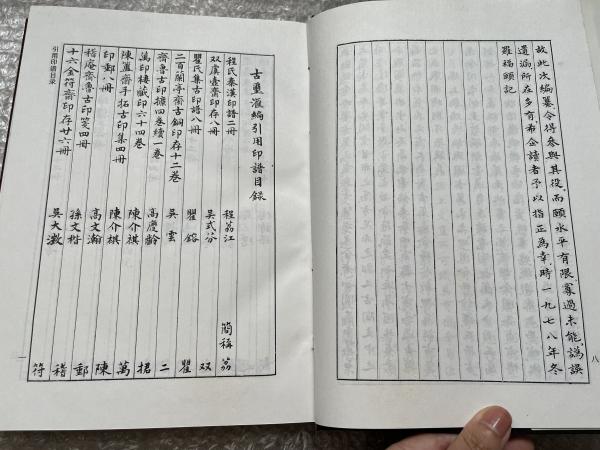 故此次編纂令得參與其役,而頤水平有限,寡過未能,譌誤
遺漏所在多有,希企讀者予以指正為幸,時一九七八年冬
羅福頤記
八
古璽滙編引用印譜目錄
程氏秦漢印譜二冊 程荔江 簡稱 荔
双虞壺齋印存八冊 吳式芬 双
瞿氏集古印譜八冊 瞿鏞 瞿
二百蘭亭齋古銅印存十二卷 吳雲 二
齊魯古印攈四卷續一卷 高慶齡 捃
萬印樓藏印六十四卷 陳介祺 萬
陳簠齋手拓古印集四冊 陳介祺 陳
印郵八冊 高文瀚 郵
稽庵齊魯古印箋四冊 孫文楷 稽
十六金符齋印存廿六冊 吳大澂 符
引用印譜目录
一